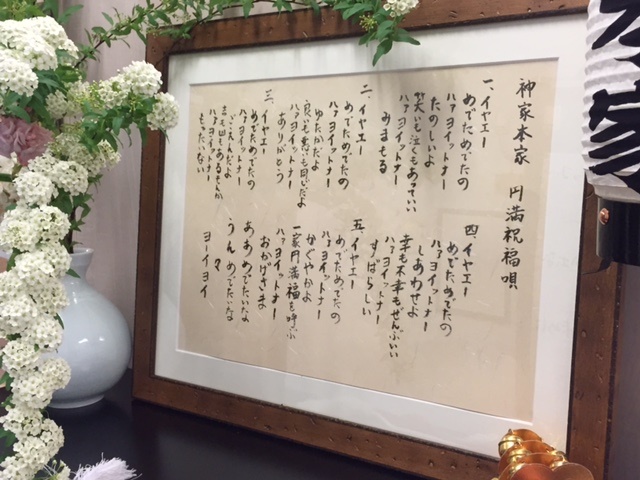 神家本家 円満祝福唄
一、イヤエー
めでためでたの
たのしいよ
ハァヨイットナー
笑いも泣くもあっていい
ハァヨイットナー
みまもる
二、イヤエー
めでためでたの
ゆたかだよ
ハァヨイットナー
良いも悪いも同じだよ
ハァヨイットナー
ありがとう
三、イヤエー
めでためでたの
ごえんだよ
ハァヨイットナー
ハァヨイットナー
もったいない
四、イヤエー
めでためでたの
しあわせよ
ハァヨイットナー
幸も不幸もぜんぶいい
ハァヨイットナー
すばらしい
五、イヤエー
めでためでたの
かがやかよ
ハァヨイットナー
一家円満福を呼ぶ
ハァヨイットナー
おかげさま
ああめでたいな
うんめでたいな
マ
ヨーイヨイ